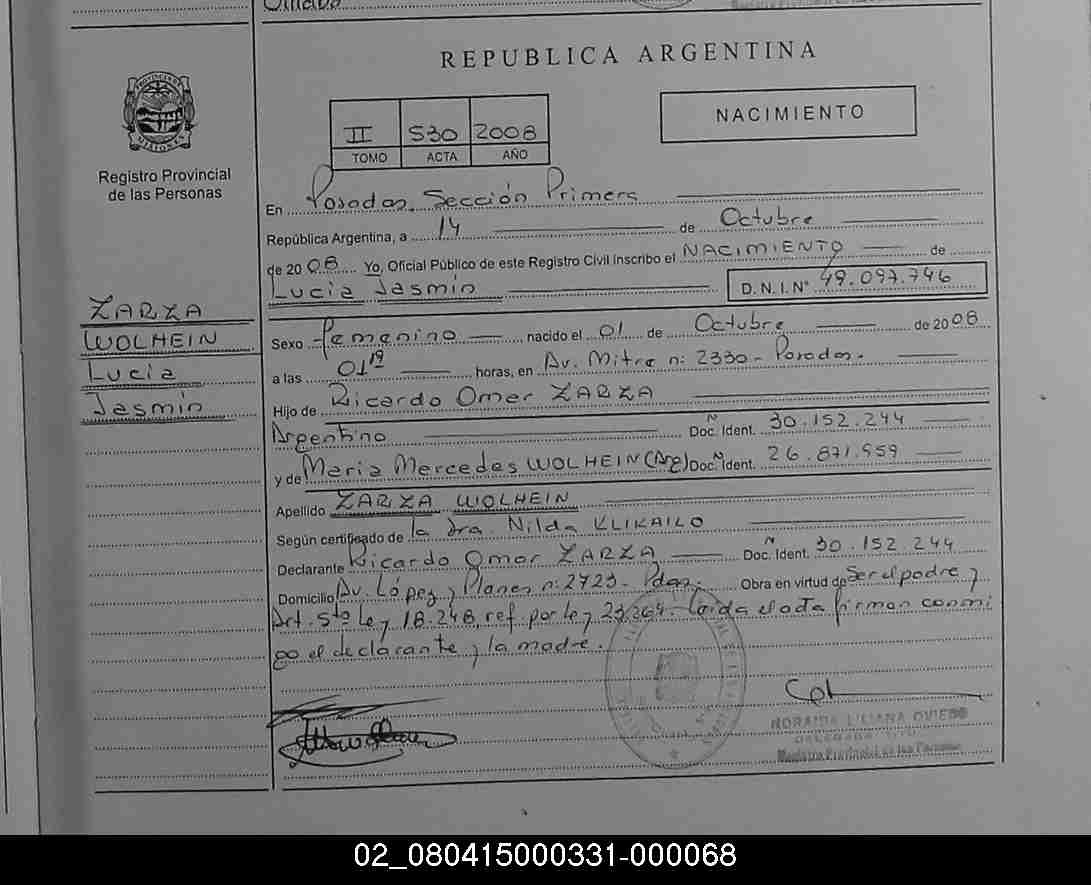 REPUBLICA ARGENTINA
PROVINCIA DE
MISIONES
Registro Provincial
de las Personas
II 530 2008
TOMO ACTA AÑO
NACIMIENTO
En Posadas, Sección Primera
República Argentina, a 14 de Octubre
de 2008 Yo, Oficial Público de este Registro Civil inscribo el NACIMIENTO de
Lucia Jasmin D.N.I. N° 49.097.746
ZARZA
WOLHEIN
Lucia
Jasmin
Sexo Femenino nacido el 01 de Octubre de 2008
a las 01 19 horas, en Av. Mitre n: 2330 - Posadas.
Hijo de Ricardo Omar ZARZA
Argentino Doc. Ident. N 30.152.244
y de Maria Mercedes WOLHEIN (Arg) Doc. Ident. N 26.871.959
Apellido ZARZA WOLHEIN
Según certificado de la Dra. Nilda KLIKAILO
Declarante Ricardo Omar ZARZA Doc. Ident. N 30.152.244
Domicilio Av. López y Planes n: 2723 - Pdas. Obra en virtud de Ser el padre y
Art. 5to Ley 18.248, ref. por ley 23.264 - Leida el acta firman conmi
go el declarante y la madre.
NORAIDA LILIANA OVIEDO
DELEGADA
Registro Provincial de las Personas
02_080415000331-000068